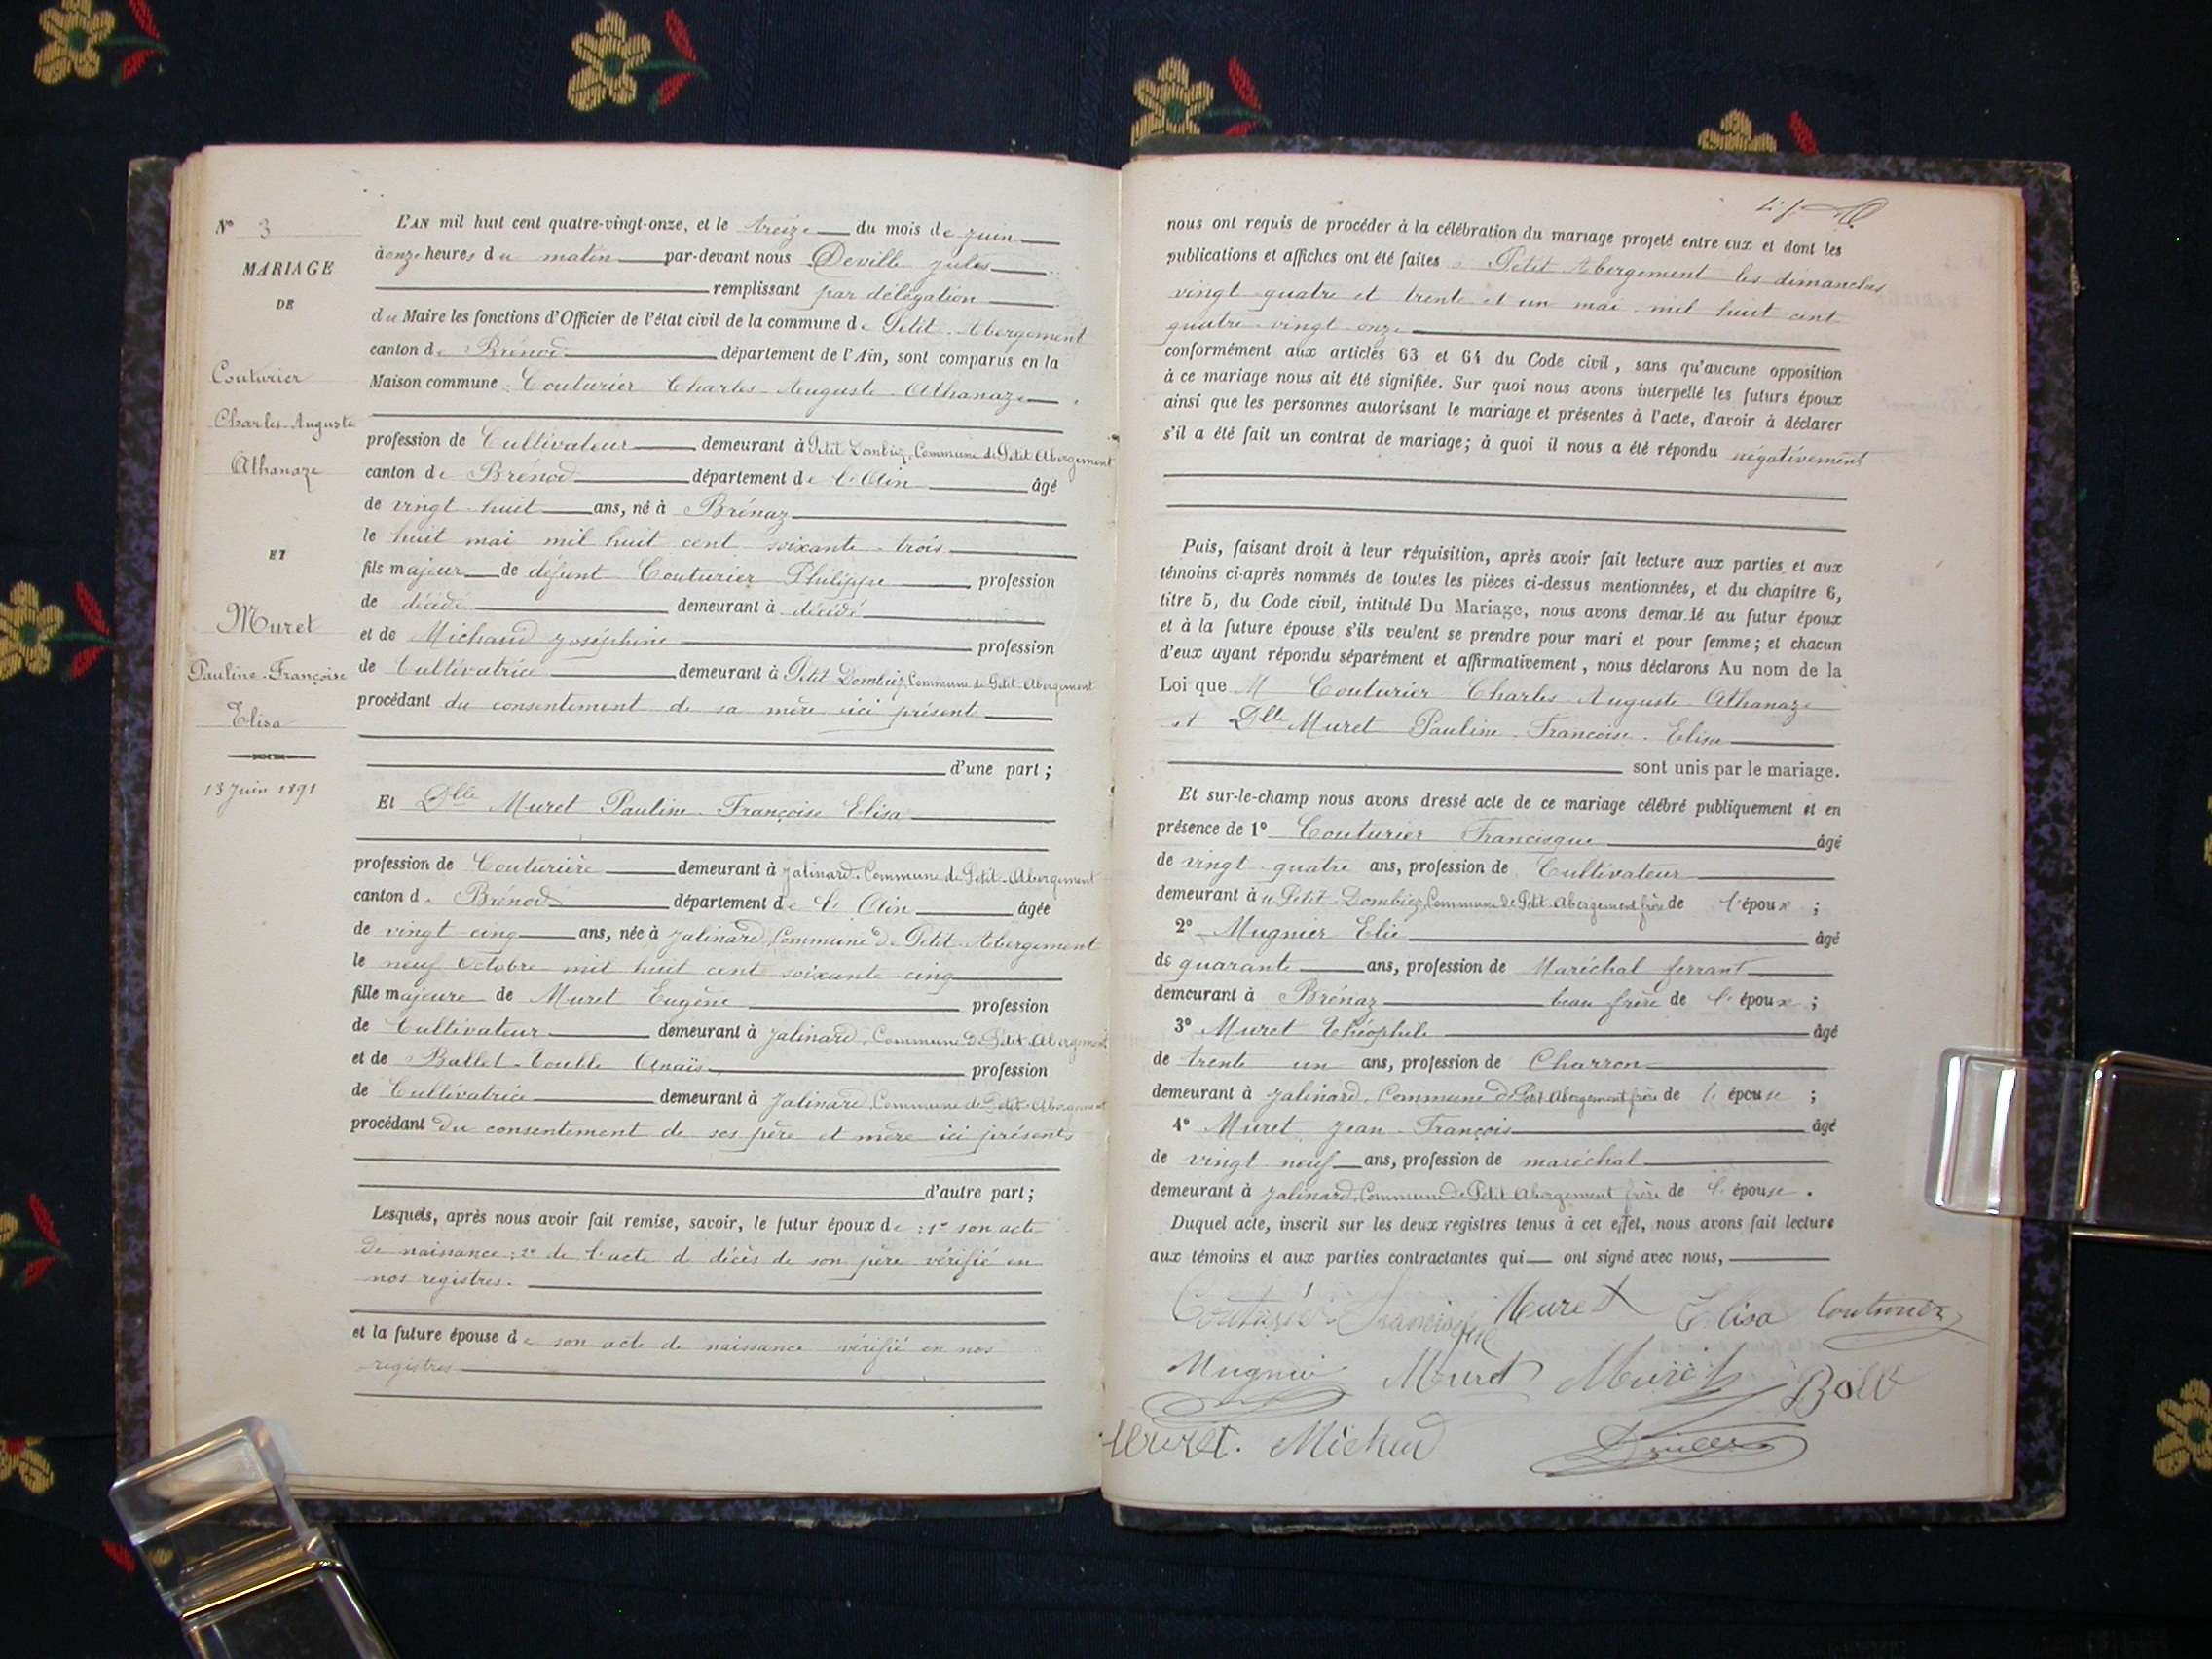 N° 3
MARIAGE
DE
Couturier
Charles-Auguste
Athanaze
ET
Muret
Pauline-Françoise
Elisa
13 Juin 1891
L'AN mil huit cent quatre-vingt-onze, et le treize du mois de juin
à onze heures du matin par-devant nous Deville Jules
remplissant par délégation
du Maire les fonctions d'Officier de l'état civil de la commune de Petit-Abergement
canton de Brénod département de l'Ain, sont comparus en la
Maison commune : Couturier Charles-Auguste-Athanaze
profession de Cultivateur demeurant à Petit Dombiez, Commune de Petit Abergement
canton de Brénod département de l'Ain âgé
de vingt-huit ans, né à Brénaz
le huit mai mil huit cent soixante-trois
fils majeur de défunt Couturier Philippe profession
de décédé demeurant à décédé
et de Michaud Joséphine profession
de Cultivatrice demeurant à Petit Dombiez, Commune de Petit-Abergement
procédant du consentement de sa mère ici présent
d'une part ;
Et Dlle Muret Pauline-Françoise Elisa
profession de Couturière demeurant à Jalinard, Commune de Petit-Abergement
canton de Brénod département de l'Ain âgée
de vingt-cinq ans, née à Jalinard, Commune de Petit-Abergement
le neuf Octobre mil huit cent soixante-cinq
fille majeure de Muret Eugène profession
de Cultivateur demeurant à Jalinard, Commune de Petit-Abergement
et de Ballet-Coulle Anaïs profession
de Cultivatrice demeurant à Jalinard, Commune de Petit-Abergement
procédant du consentement de ses père et mère ici présents
d'autre part ;
Lesquels, après nous avoir fait remise, savoir, le futur époux de : 1° son acte
de naissance ; 2° de l'acte de décès de son père vérifié en
nos registres.
et la future épouse de son acte de naissance vérifié en nos
registres
nous ont requis de procéder à la célébration du mariage projeté entre eux et dont les
publications et affiches ont été faites à Petit Abergement les dimanches
vingt-quatre et trente et un mai mil huit cent
quatre-vingt-onze
conformément aux articles 63 et 64 du Code civil, sans qu'aucune opposition
à ce mariage nous ait été signifiée. Sur quoi nous avons interpellé les futurs époux
ainsi que les personnes autorisant le mariage et présentes à l'acte, d'avoir à déclarer
s'il a été fait un contrat de mariage ; à quoi il nous a été répondu négativement
Puis, faisant droit à leur réquisition, après avoir fait lecture aux parties et aux
témoins ci-après nommés de toutes les pièces ci-dessus mentionnées, et du chapitre 6,
titre 5, du Code civil, intitulé Du Mariage, nous avons demandé au futur époux
et à la future épouse s'ils veulent se prendre pour mari et pour femme ; et chacun
d'eux ayant répondu séparément et affirmativement, nous déclarons Au nom de la
Loi que M Couturier Charles-Auguste-Athanaze
et Dlle Muret Pauline-Françoise-Elisa
sont unis par le mariage.
Et sur-le-champ nous avons dressé acte de ce mariage célébré publiquement et en
présence de 1° Couturier Francisque âgé
de vingt-quatre ans, profession de Cultivateur
demeurant à Petit-Dombiez, Commune de Petit-Abergement frère de l'époux ;
2° Mugnier Elie âgé
de quarante ans, profession de Maréchal ferrant
demeurant à Brénaz beau-frère de l'époux ;
3° Muret Théophile âgé
de trente un ans, profession de Charron
demeurant à Jalinard, Commune de Petit Abergement frère de l'épouse ;
4° Muret Jean-François âgé
de vingt neuf ans, profession de maréchal
demeurant à Jalinard, Commune de Petit Abergement frère de l'épouse.
Duquel acte, inscrit sur les deux registres tenus à cet effet, nous avons fait lecture
aux témoins et aux parties contractantes qui ont signé avec nous,
Couturier Francisque Muret Elisa Couturier
Mugnier Muret Muret
Muret. Michud